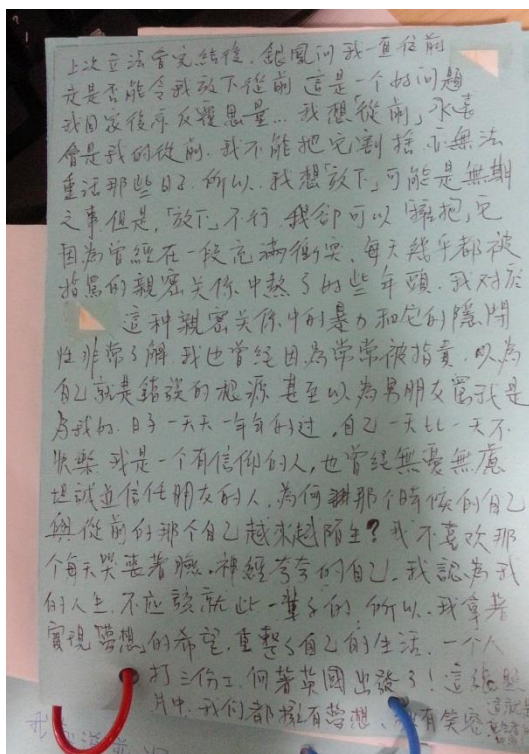 上次立法會完結後，銀鳳问我一直往前
走是否能令我放下從前 這是一个好问題
我回家後亦反覆思量… 我想「從前」永遠
會是我的從前．我不能把它割捨，亦無法
重活那些日子．所以．我想「放下」可能是無期
之事．但是，「放下」不行．我卻可以「擁抱」它
因為曾經在一段充滿衝突，每天幾乎都被
指罵的親密关係中熬了好些年頭．我对於
這种親密关係中的暴力和它的隱閉
性非常了解．我也曾經因為常常被指責．以為
自己就是錯誤的根源 甚至以為男朋友罵我是
為我好．日子一天天一年年的过，自己一天比一天不
快樂 我是一个有信仰的人，也曾經無憂無慮
坦誠並信任朋友的人．為何 那个時候的自己
與從前的那个自己越來越陌生？我不喜欢那
个每天哭喪著臉．神經兮兮的自己．我認為我
的人生．不应該就此一輩子的 所以．我拿著
實現「夢想」的希望．重整了自己的生活．一个人
打三份工．向著英國出發了！這張照
片中．我们都擁有夢想、 有笑容